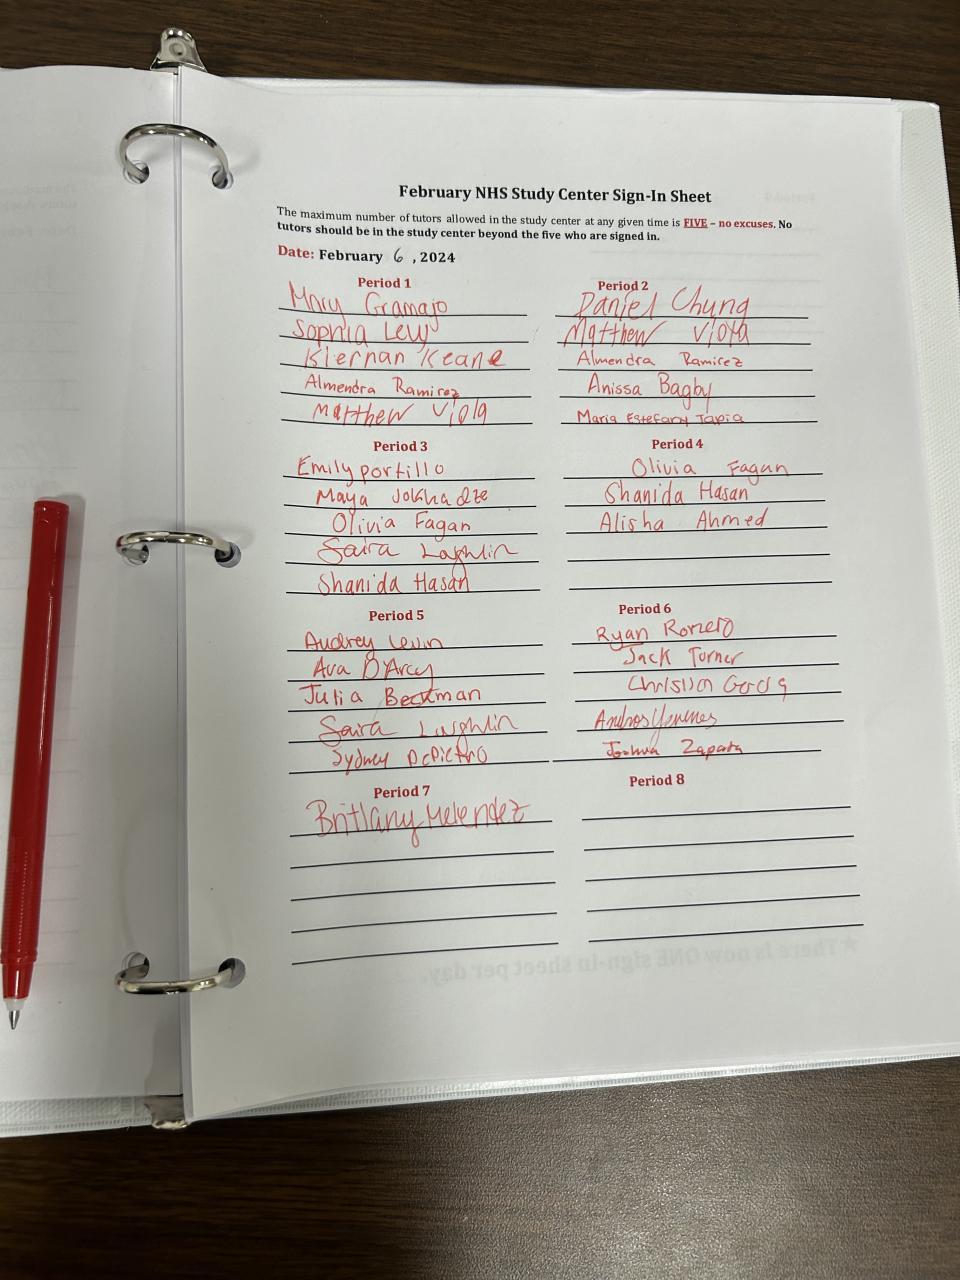 February NHS Study Center Sign-In Sheet
The maximum number of tutors allowed in the study center at any given time is FIVE – no excuses. No
tutors should be in the study center beyond the five who are signed in.
Date: February 6, 2024
Period 1
Mary Gramajo
Sophia Levy
Kiernan Keane
Almendra Ramirez
Matthew Viola
Period 2
Daniel Chung
Matthew Viola
Almendra Ramirez
Anissa Bagby
Maria Estefany Tapia
Period 3
Emily portillo
Maya Jokhadze
Olivia Fagan
Saira Laghlin
Shanida Hasan
Period 4
Olivia Fagan
Shanida Hasan
Alisha Ahmed
Period 5
Audrey Levin
Ava D'Arcy
Julia Beckman
Saira Laghlin
Sydney DePietro
Period 6
Ryan Romero
Jack Turner
Andres Jimenes
Joshua Zapata
Period 7
Brittany Melendez
Period 8
★There is now ONE sign-in sheet per day.